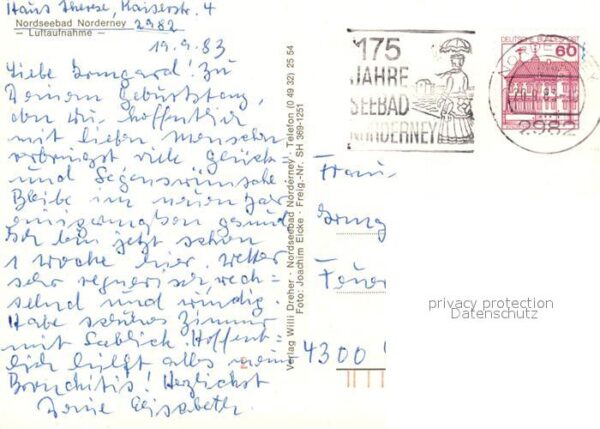 Haus Therese, Kaiserstr. 4
Nordseebad Norderney 2982
– Luftaufnahme –
19.9.83
Liebe Irmgard! Zu
Deinem Geburtstag,
den Du hoffentlich
mit lieben Menschen
verbringst viele Glück-
und Segenswünsche.
Bleibe im neuen Jahr
einigermaßen gesund
Ich bin jetzt schon
1 Woche hier. Wetter
sehr regnerisch, wech=
selnd und windig.
Habe schönes Zimmer
mit Seeblick. Hoffent=
lich hilft alles mein
Bronchitis! Herzlichst
Deine Elisabeth.
Verlag Willi Dreher · Nordseebad Norderney · Telefon (0 49 32) 25 54
Foto: Joachim Eicke · Freig.-Nr. SH 369-1251
175
JAHRE
SEEBAD
NORDERNEY
DEUTSCHE BUNDESPOST
60
2982
Frau
Irmg
4300
privacy protection
Datenschutz